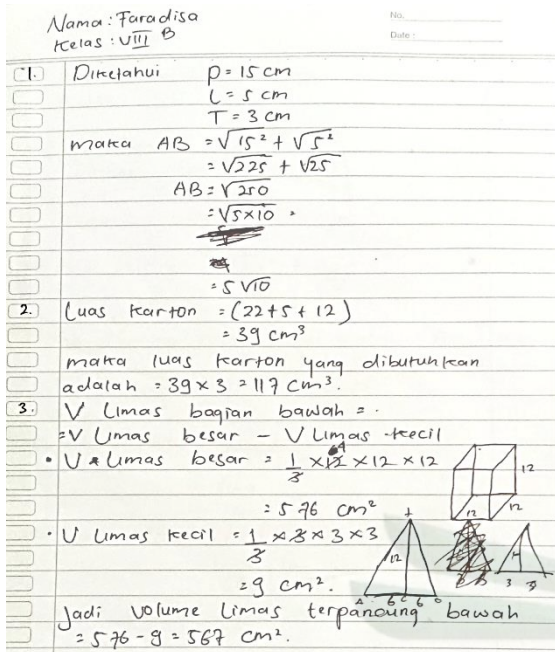 Nama : Faradisa
Kelas : VIII B
No.
Date :
1. Diketahui P = 15 cm
L = 5 cm
T = 3 cm
maka AB = √15² + √5²
= √225 + √25
AB = √250
= √5×10
= 5 √10
2. Luas karton = (22 + 5 + 12)
= 39 cm³
maka luas karton yang dibutuhkan
adalah = 39 × 3 = 117 cm³.
3. V Limas bagian bawah =
= V Limas besar - V Limas kecil
• V Limas besar = 1/3 × 12 4 × 12 × 12
= 576 cm²
• V Limas kecil = 1/3 × 3 × 3 × 3
= 9 cm².
12
12
12
12
6 6
3 3
Jadi volume limas terpancung bawah
= 576 - 9 = 567 cm².